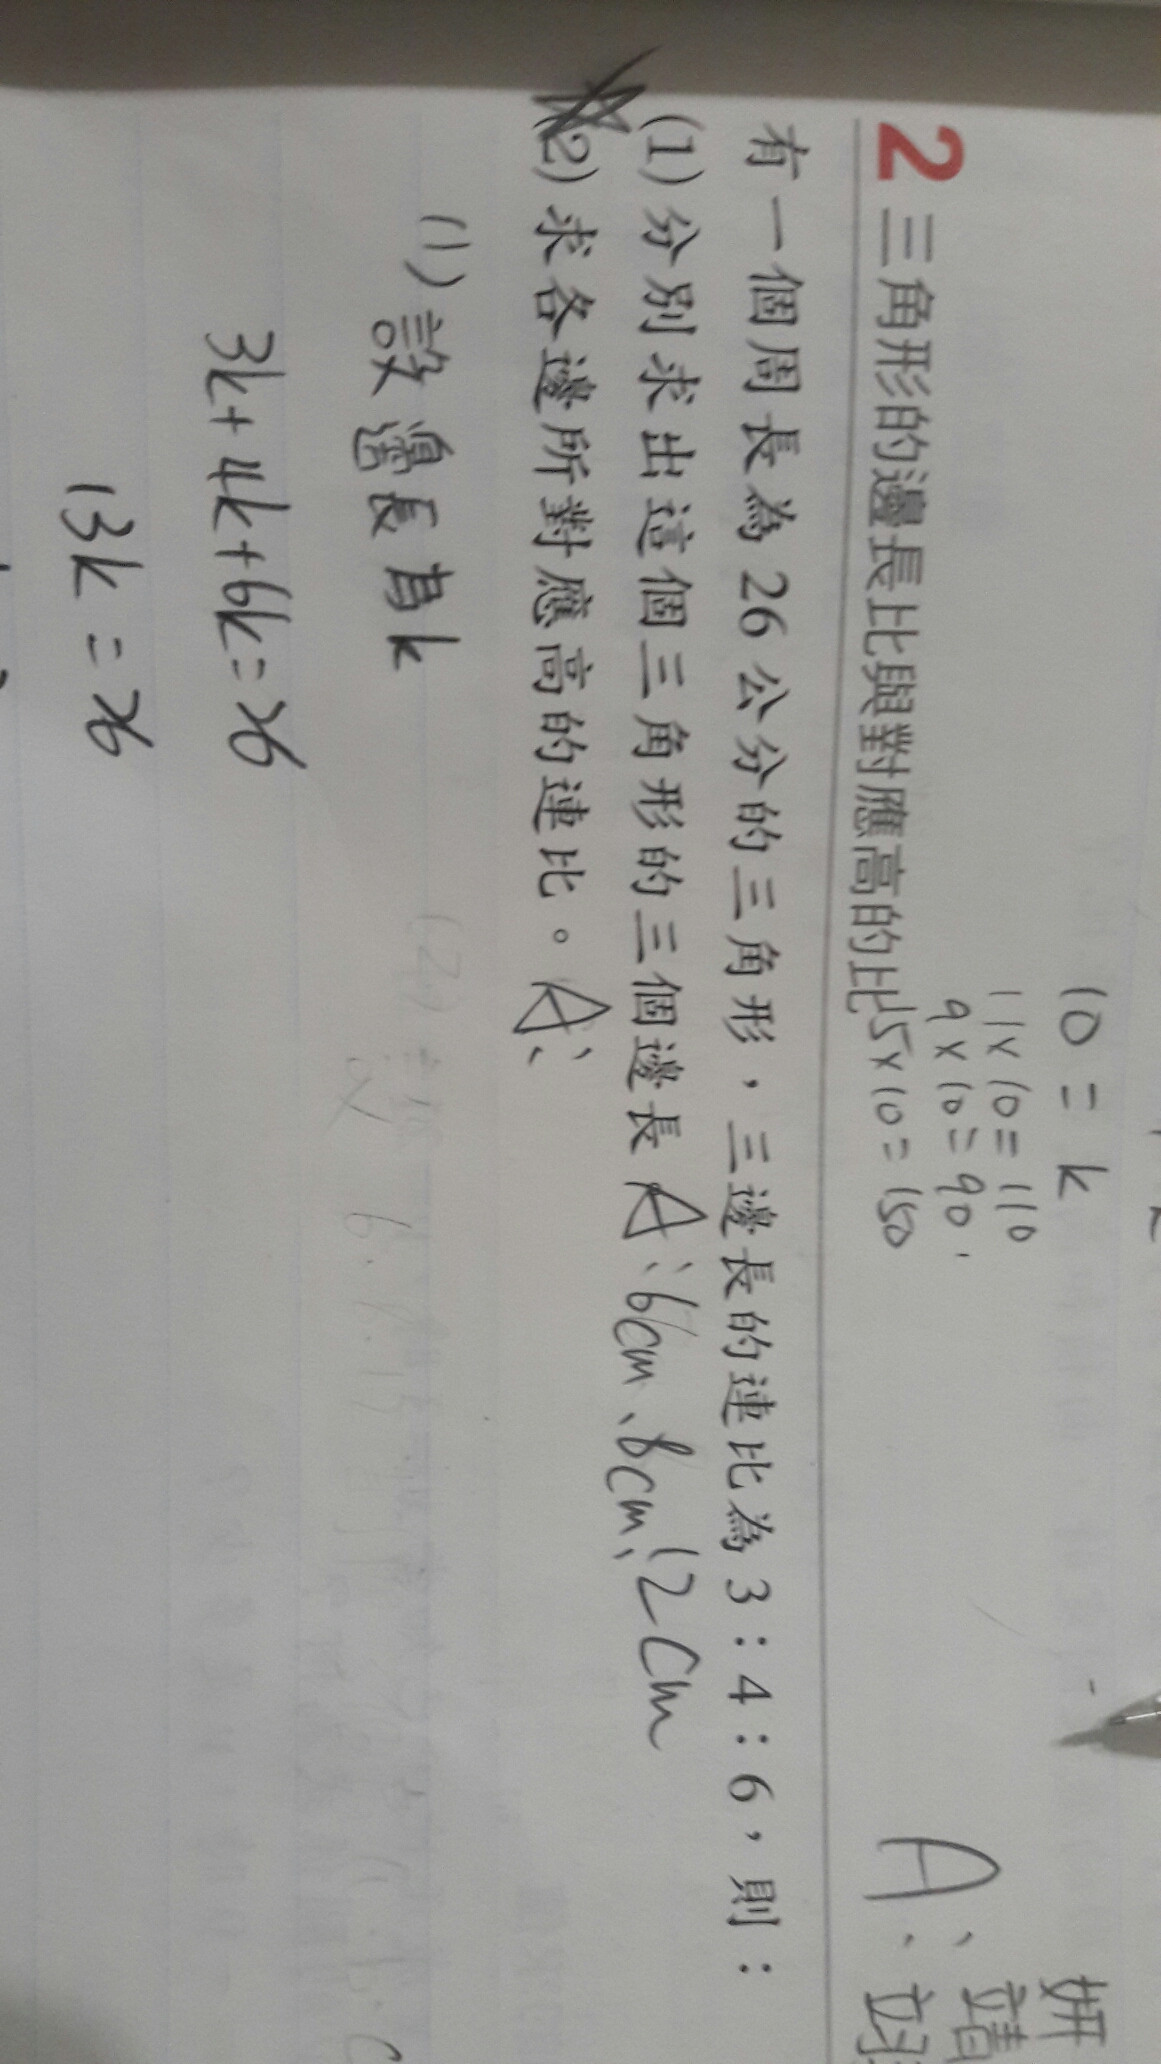 10=k
11×10=110
9×10=90.
15×10=150
A:
妍
靖
2 三角形的邊長比與對應高的比
有一個周長為 26 公分的三角形，三邊長的連比為 3：4：6，則：
(1) 分別求出這個三角形的三個邊長 A:6cm、8cm、12cm
(2) 求各邊所對應高的連比。A:
(1) 設邊長為k
3k+4k+6k=26
13k=26